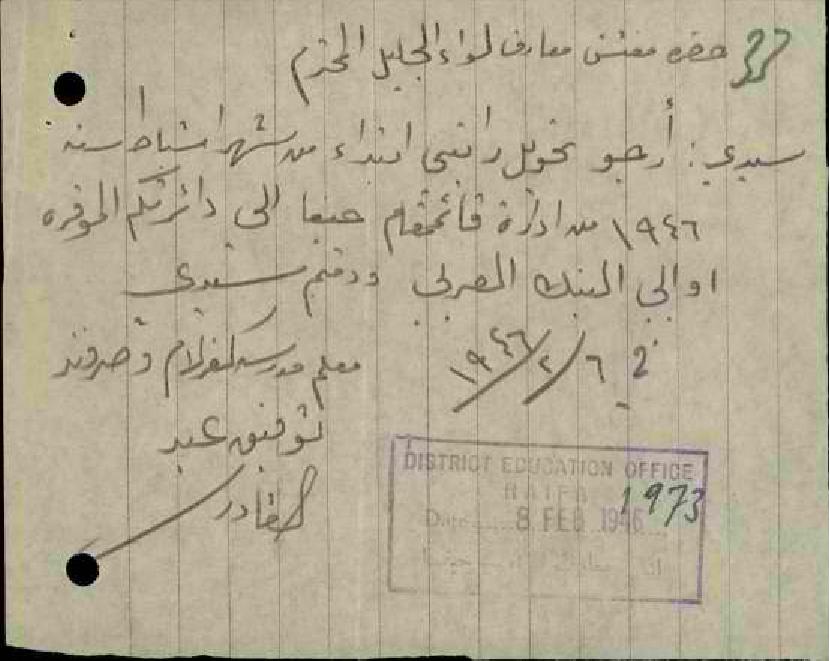 حضرة مفتش معارف لواء الجليل المحترم
سيدي: أرجو تحويل راتبي ابتداء من شهر شباط سنة
١٩٤٦ من ادارة قائمقام حيفا الى دائرتكم الموقره
او الى البنك العربي ودمتم سيدي
في ٦/٢/١٩٤٦
معلم مدرسة كفرلام وصرفند
توفيق عبد
القادر
DISTRICT EDUCATION OFFICE
HAIFA
1973
Date 8 FEB 1946